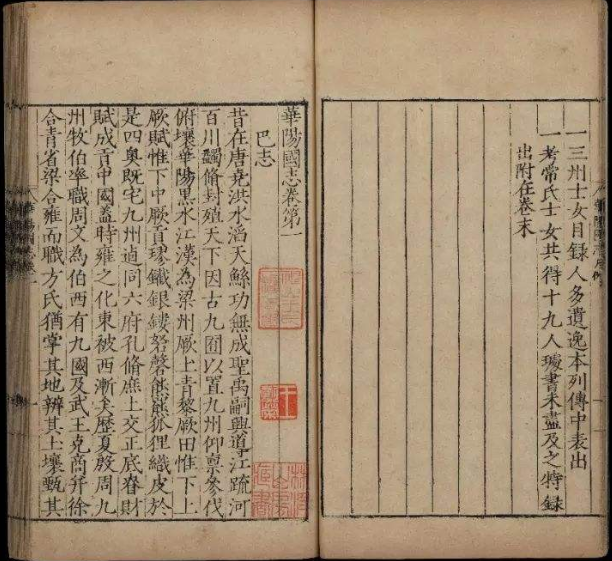 一三州士女目録人多遺逸本列傳中表出
一考常氏士女共得十九人璩書未盡及之特録
出附在卷末
華陽國志卷第一
巴志
昔在唐堯洪水滔天鯀功無成聖禹嗣興導江疏河
百川蠲脩封殖天下因古九囿以置九州仰禀參伐
俯壤華陽黑水江漢為梁州厥土青黎厥田惟下上
厥賦惟下中厥貢璆鐵銀鏤砮磬熊羆狐狸織皮於
是四奥既宅九州逌同六府孔脩庶土交正底眘財
賦成貢中國盖時雍之化東被西漸矣歷夏殷周九
州牧伯率職周文為伯西有九國及武王克商并徐
合青省梁合雍而職方氏猶掌其地辨其土壤甄其